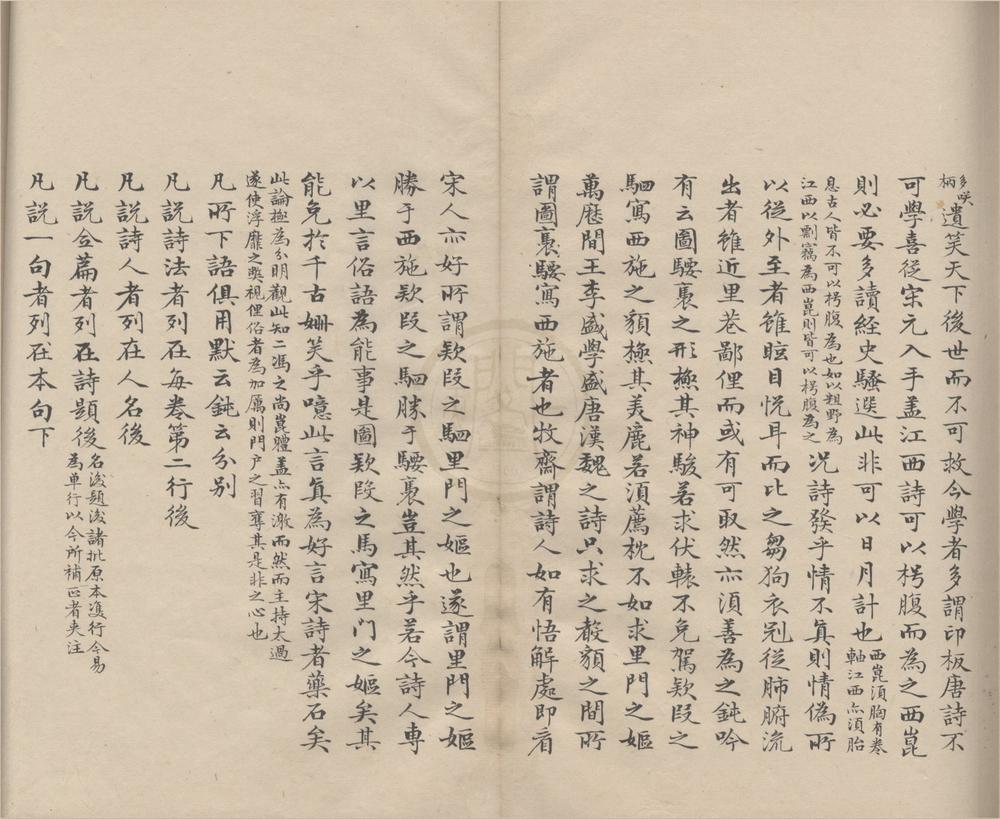 多咲柄遺笑天下後世而不可救今學者多謂印板唐詩不
可學喜從宋元入手盖江西詩可以楞腹而為之西崑
則必要多讀經史騷選此非可以日月計也西崑須胸有卷軸江西亦須胎
息古人皆不可以楞腹為也如以粗野為江西以剽竊為西崑則皆可以楞腹為之况詩發乎情不真則情偽所
以從外至者雖眩目恱耳而比之芻狗衣剡從肺腑流
出者雖近里巷鄙俚而或有可取然亦須善為之鈍吟
有云圖騕褭之形極其神駿若求伏轅不免駕欵段之
駟寫西施之貌極其美麗若須薦枕不如求里門之嫗
萬歴間王李盛學盛唐漢魏之詩只求之聲貌之間所
謂圖褭騕寫西施者也牧齋謂詩人如有悟解處即看
宋人亦好所謂欵段之駟里門之嫗也遂謂里門之嫗
勝于西施欵段之駟勝于騕褭豈其然乎若今詩人專
以里言俗語為能事是圖欵段之馬寫里门之嫗矣其
能免於千古姗笑乎噫此言真為好言宋詩者藥石矣
此論極為分明觀此知二馮之尚崑體盖亦有激而然而主持太過
遂使浮靡之弊視俚俗者為加厲則門户之習奪其是非之心也
凡所下語俱用默云鈍云分别
凡説詩法者列在每卷第二行後
凡説詩人者列在人名後
凡説合篇者列在詩題後名後題後諸批原本雙行今易為單行以今所補正者夹注
凡説一句者列在本句下